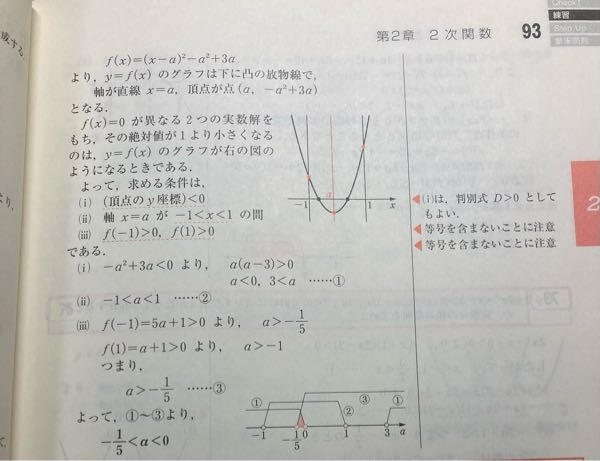 Check!
練習
Step Up
章末問題
第2章 2次関数 93
f(x)=(x-a)²-a²+3a
より，y=f(x) のグラフは下に凸の放物線で，
軸が直線 x=a，頂点が点(a, -a²+3a)
となる．
f(x)=0 が異なる2つの実数解を
もち，その絶対値が1より小さくなる
のは，y=f(x) のグラフが右の図の
ようになるときである．
よって，求める条件は，
(i) (頂点の y 座標)<0
(ii) 軸 x=a が -1<x<1 の間
(iii) f(-1)>0, f(1)>0
である．
-1 a 1 x
◀(i)は，判別式 D>0 として
もよい．
◀等号を含まないことに注意
◀等号を含まないことに注意
(i) -a²+3a<0 より， a(a-3)>0
a<0, 3<a ……①
(ii) -1<a<1 ……②
(iii) f(-1)=5a+1>0 より， a>-1/5
f(1)=a+1>0 より， a>-1
つまり，
a>-1/5 ……③
よって，①～③より，
-1/5<a<0
① ③ ① ②
-1 -1/5 0 1 3 a
2